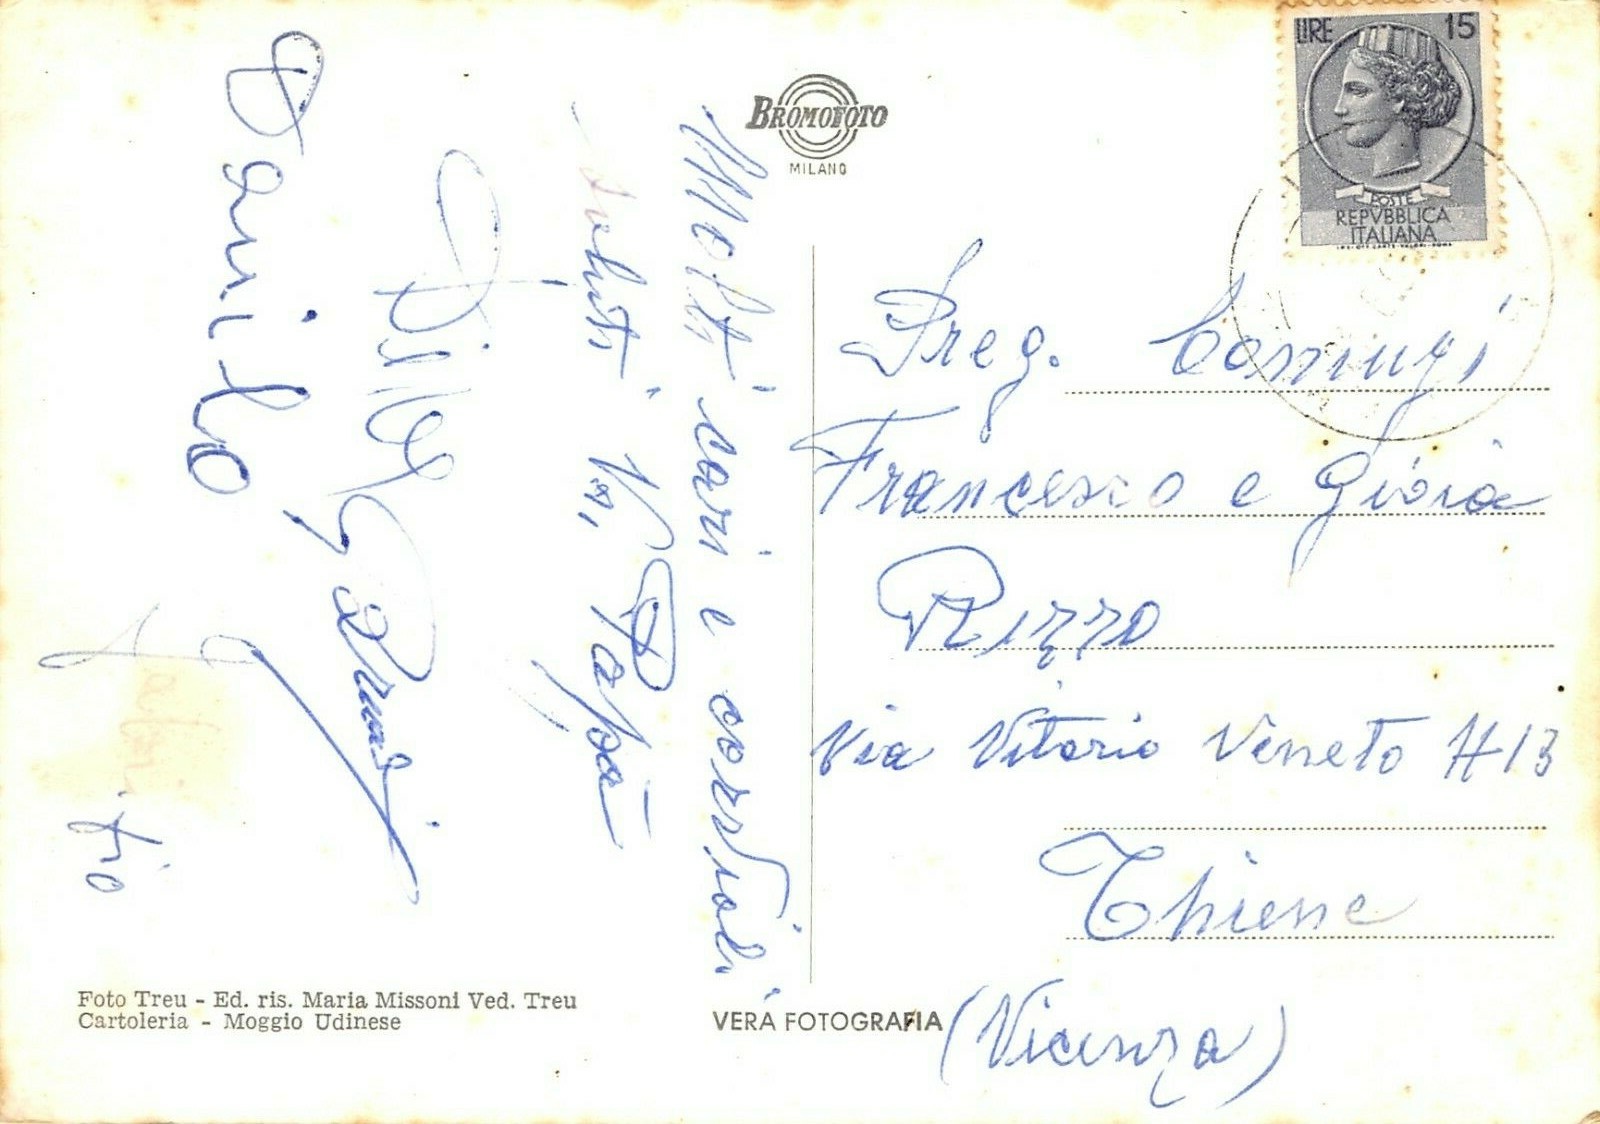 BROMOFOTO
MILANO
LIRE 15
POSTE
REPVBBLICA
ITALIANA
Molti cari e cordiali
saluti Vs, Papà
Danilo
Preg. Coniugi
Francesco e Gioia
Rizzo
Via Vitorio Veneto N 13
Thiene
(Vicenza)
Foto Treu - Ed. ris. Maria Missoni Ved. Treu
Cartoleria - Moggio Udinese
VERA FOTOGRAFIA